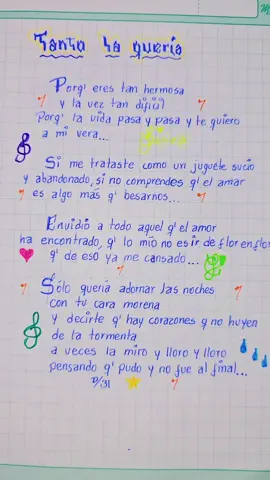 Tanto la quería
Porq' eres tan hermosa
y la vez tan difícil
Porq' la vida pasa y pasa y te quiero
a mi vera...
Si me trataste como un juguete sucio
y abandonado, si no comprendes q' el amar
es algo más q' besarnos...
Envidio a todo aquel q' el amor
ha encontrado, q' lo mío no es ir de flor en flor
q' de eso ya me cansado...
Sólo quería adornar las noches
con tu cara morena
y decirte q' hay corazones q no huyen
de la tormenta
a veces la miro y lloro y lloro
pensando q' pudo y no fue al final...